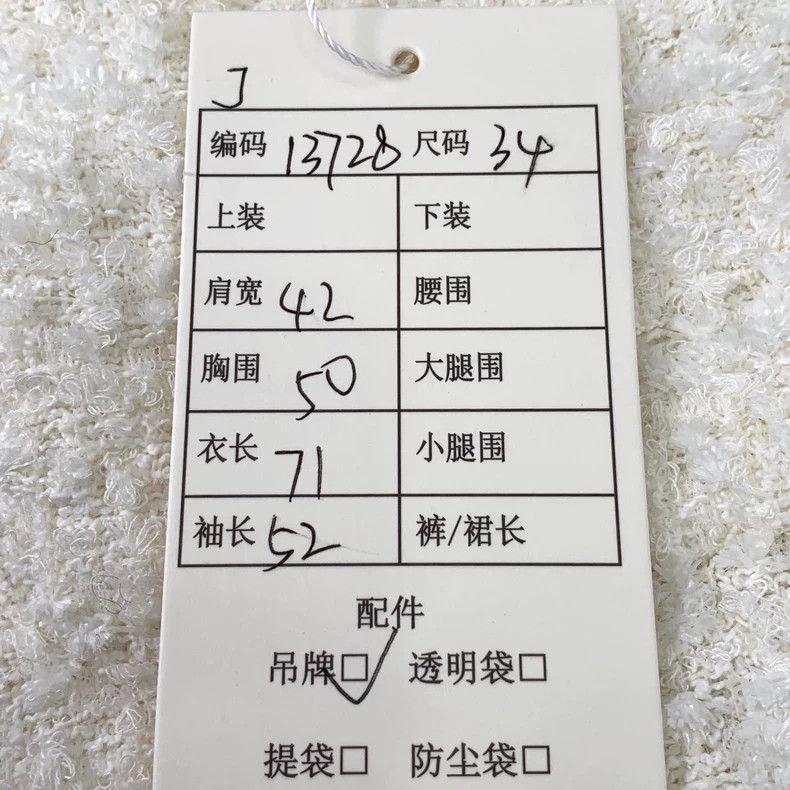 J
编码 13728 尺码 34
上装 下装
肩宽 42 腰围
胸围 50 大腿围
衣长 71 小腿围
袖长 52 裤/裙长
配件
吊牌□✓ 透明袋□
提袋□ 防尘袋□